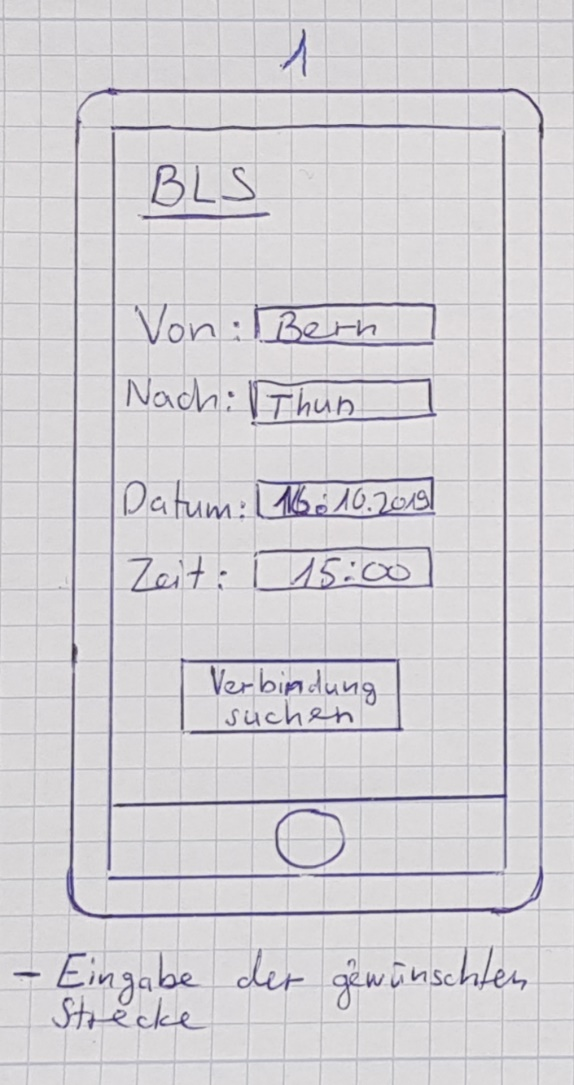 1
BLS
Von: Bern
Nach: Thun
Datum: 16.10.2019
Zeit: 15:00
Verbindung
suchen
- Eingabe der gewünschten
Strecke